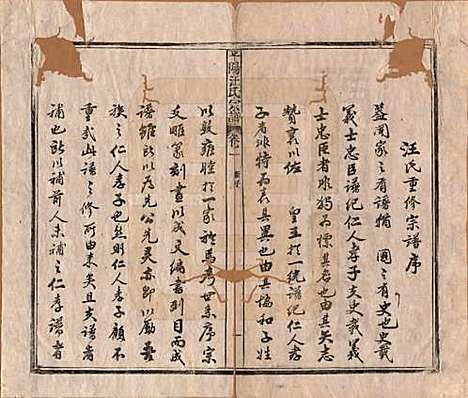 汪氏重修宗譜序
蓋聞家之有譜猶國之有史也史載
義士忠臣譜紀仁人孝子夫史載義
士忠臣者非獨為標其忠也由其矢志
贊襄以佐皇王於一統譜紀仁人孝
子者非特為表其異也由其協和子姓
平陽汪氏宗譜
卷之一
以敦雍睦於一家於焉考世系序宗
支雕篆刻畫以成文編書列目而成
譜雖所以為先公先靈亦即以勵吾
族之仁人孝子也然則仁人孝子顧不
重哉此譜之修所由來矣且夫譜者
補也所以補前人未補之仁孝譜者